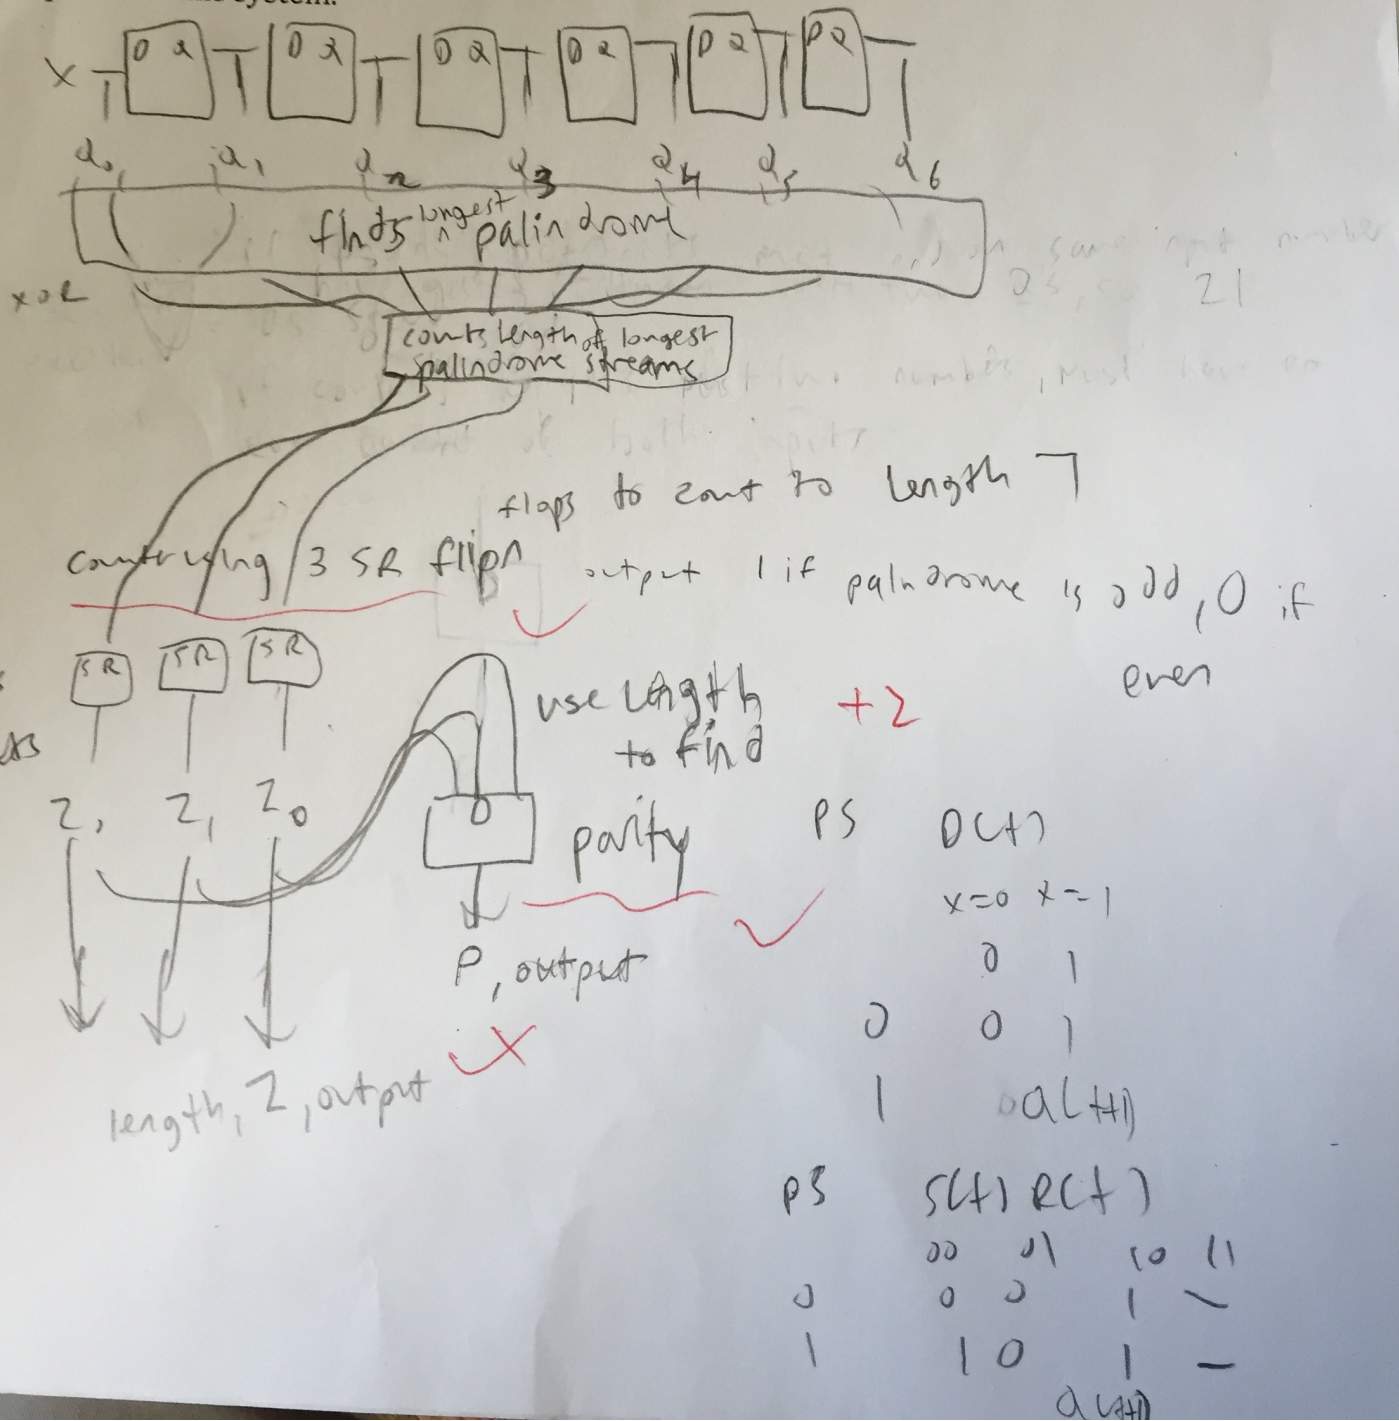 system.
X D Q D Q D Q D Q D Q D Q
Q0 Q1 Q2 Q3 Q4 Q5 Q6
finds longest palindrome
XOR
counts length of longest
palindrome streams
flops to count to length 7
counter using 3 SR flip
output 1 if palindrome is odd, 0 if
even
SR SR SR
use length +2
to find
parity
Z, Z1 Z0
D
P, output
length, Z, output
PS D(t)
x=0 x=1
0 1
0 0 1
1 Q(t+1)
PS S(t) R(t)
00 01 10 11
0 0 0 1 -
1 1 0 1 -
Q(t+1)